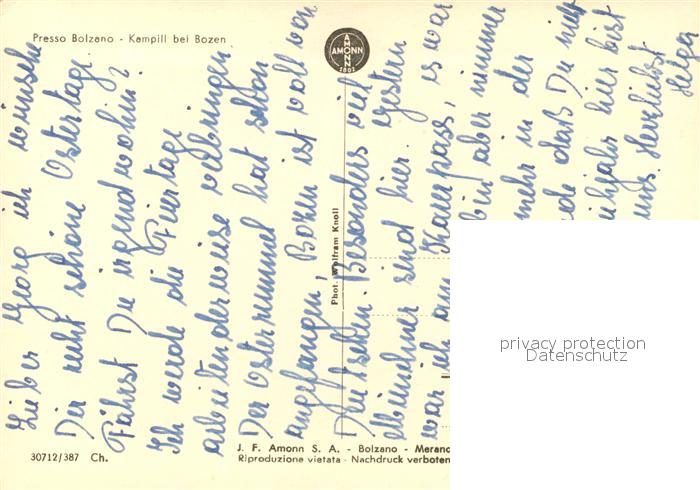 Presso Bolzano - Kampill bei Bozen
AMONN
AMONN
1802
Lieber Georg ich wünsche
Dir recht schöne Ostertage.
Fährst Du irgendwohin?
Ich werde die Feiertage
arbeitenderweise verbringen
Der Osterrummel hat schon
angefangen, Bozen ist voll von
Deutschen. Besonders viel
Münchner sind hier. Gestern
war ich am Karerpass, es war
bin aber nimmer
mehr in der
de daß Du nicht
hier bist
uns. Herzlichst
Helga
Phot. Wolfram Knoll
privacy protection
Datenschutz
30712/387 Ch.
J. F. Amonn S. A. - Bolzano - Meran
Riproduzione vietata - Nachdruck verboten